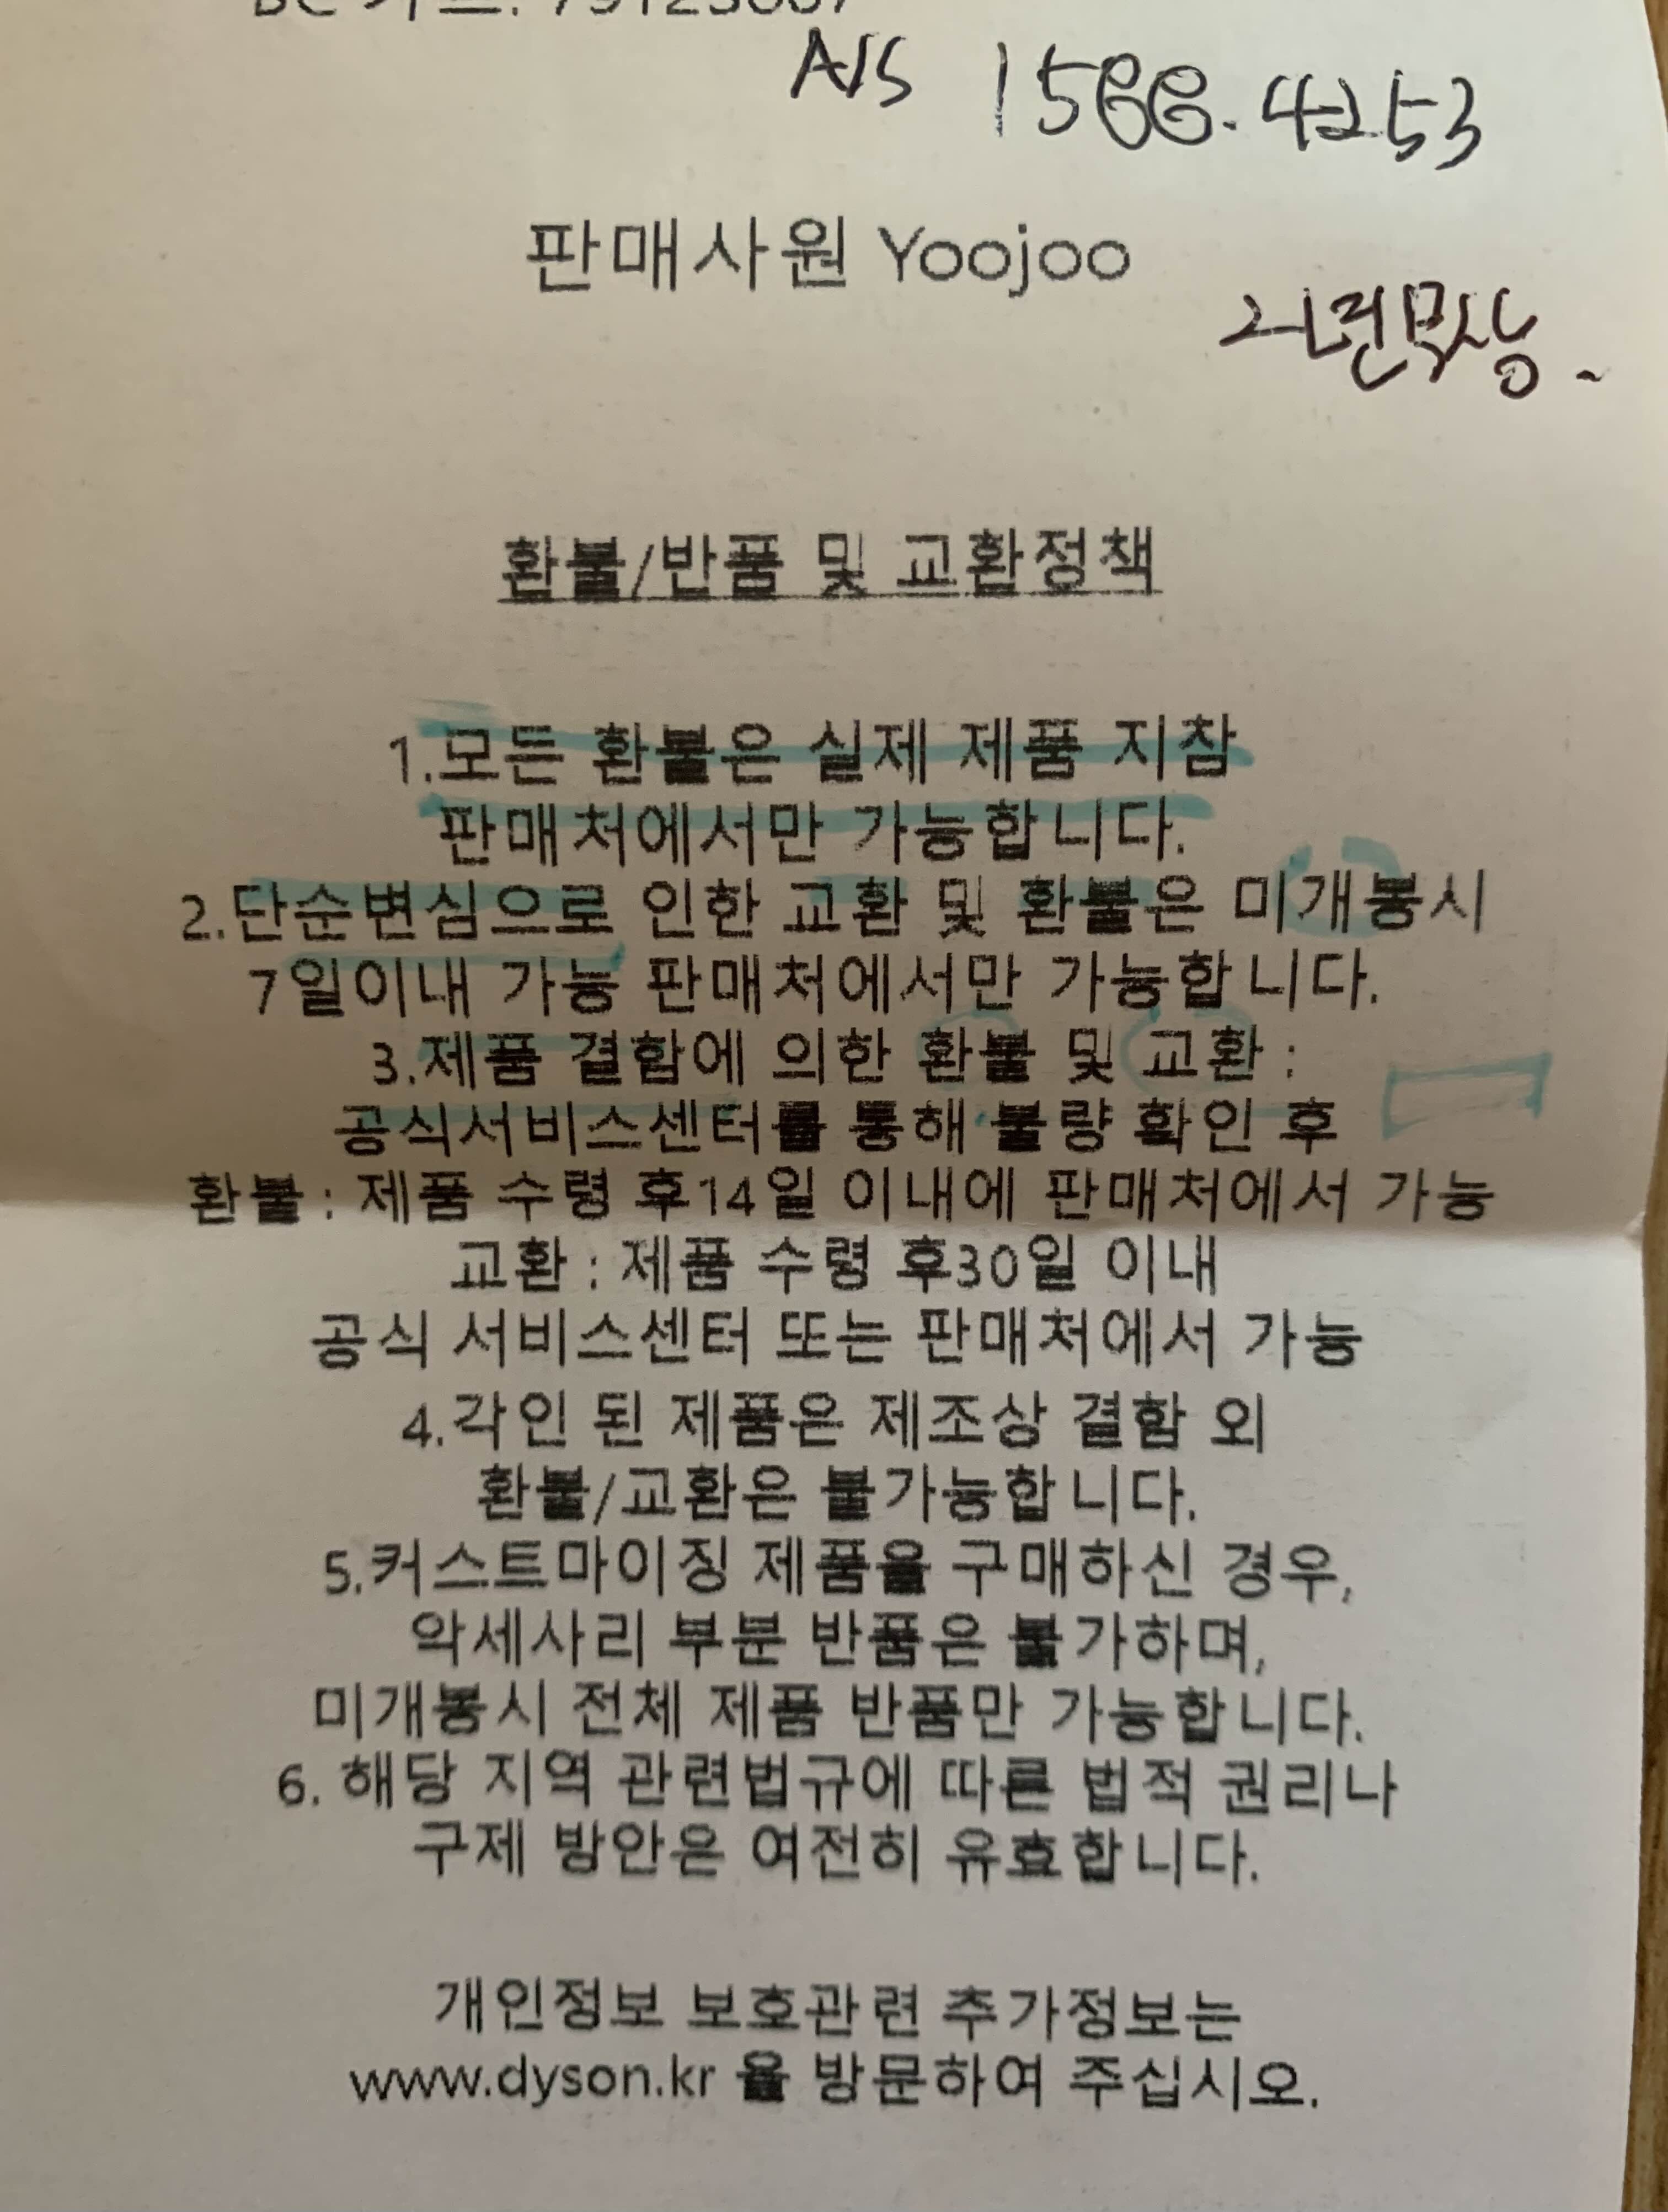 A/S 1566.4253
판매사원 Yoojoo
2년무상.
환불/반품 및 교환정책
1.모든 환불은 실제 제품 지참
판매처에서만 가능합니다.
2.단순변심으로 인한 교환 및 환불은 미개봉시
7일이내 가능 판매처에서만 가능합니다.
3.제품 결함에 의한 환불 및 교환 :
공식서비스센터를 통해 불량 확인 후
환불 : 제품 수령 후14일 이내에 판매처에서 가능
교환 : 제품 수령 후30일 이내
공식 서비스센터 또는 판매처에서 가능
4.각인 된 제품은 제조상 결함 외
환불/교환은 불가능합니다.
5.커스트마이징 제품을 구매하신 경우,
악세사리 부분 반품은 불가하며,
미개봉시 전체 제품 반품만 가능합니다.
6. 해당 지역 관련법규에 따른 법적 권리나
구제 방안은 여전히 유효합니다.
개인정보 보호관련 추가정보는
www.dyson.kr 을 방문하여 주십시오.